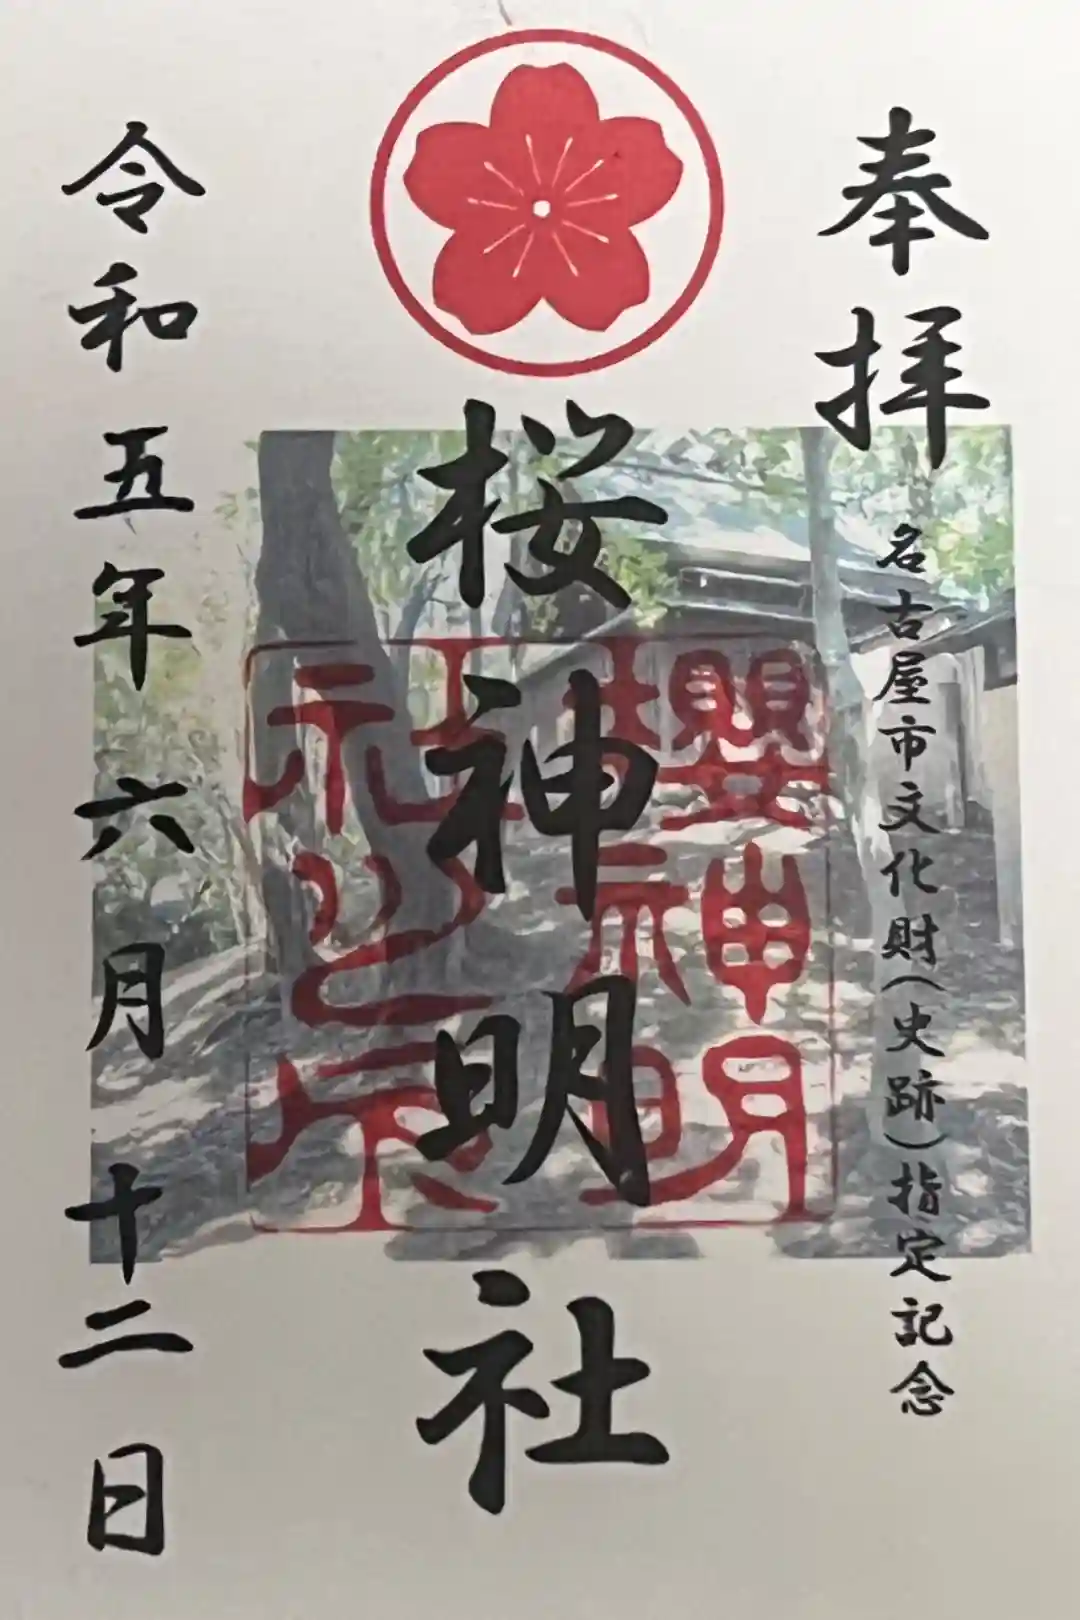 奉拝
名古屋市文化財(史跡)指定記念
桜神明社
櫻神明社之印
令和五年六月十二日